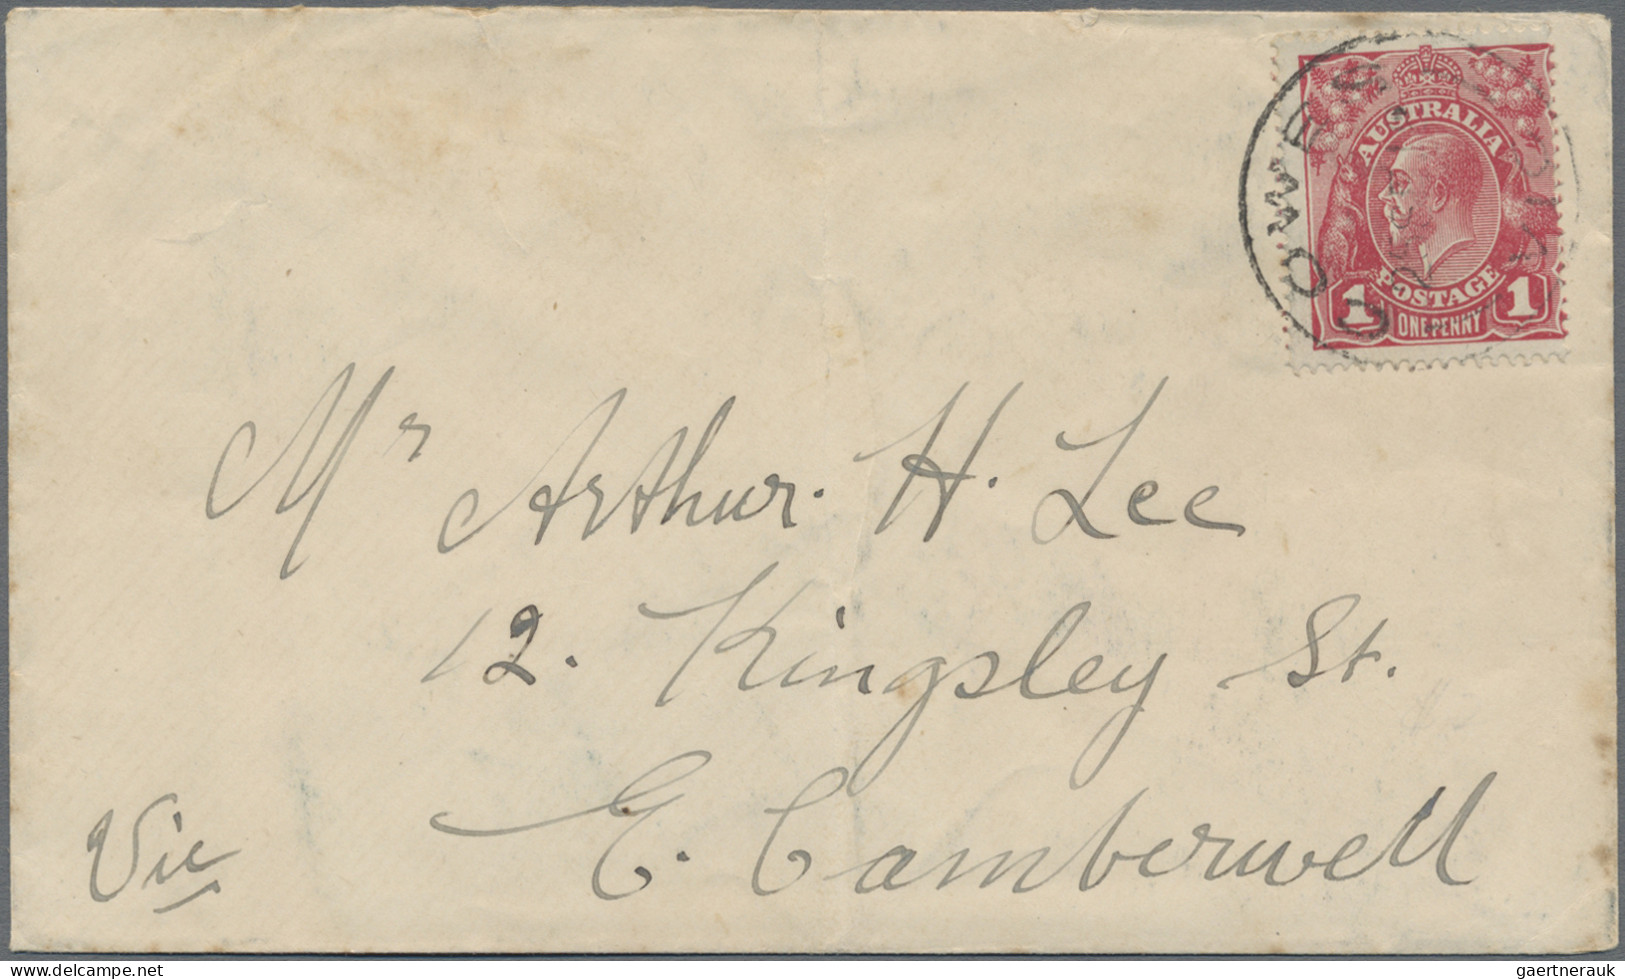 AUSTRALIA
POSTAGE
1 ONE PENNY 1
COWES
Mr Arthur. H. Lee
12. Kingsley St.
E. Camberwell
Vic
www.delcampe.net
gaertnerauk